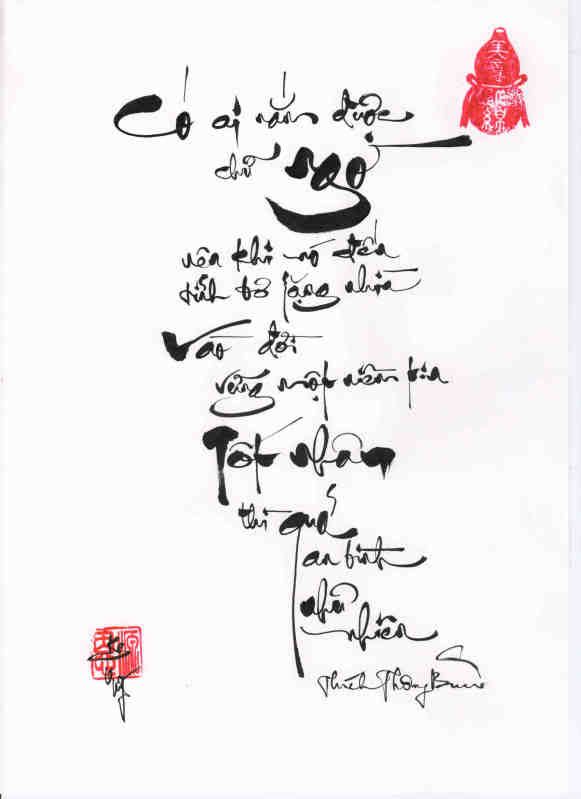 Có ai nắm được
chữ ngờ
nên khi nó đến
tỉnh bơ lặng nhìn
Vào đời
vững một niềm tin
Tốt nhân
thì quả
an bình
như
nhiên
Thích Thông Bửu